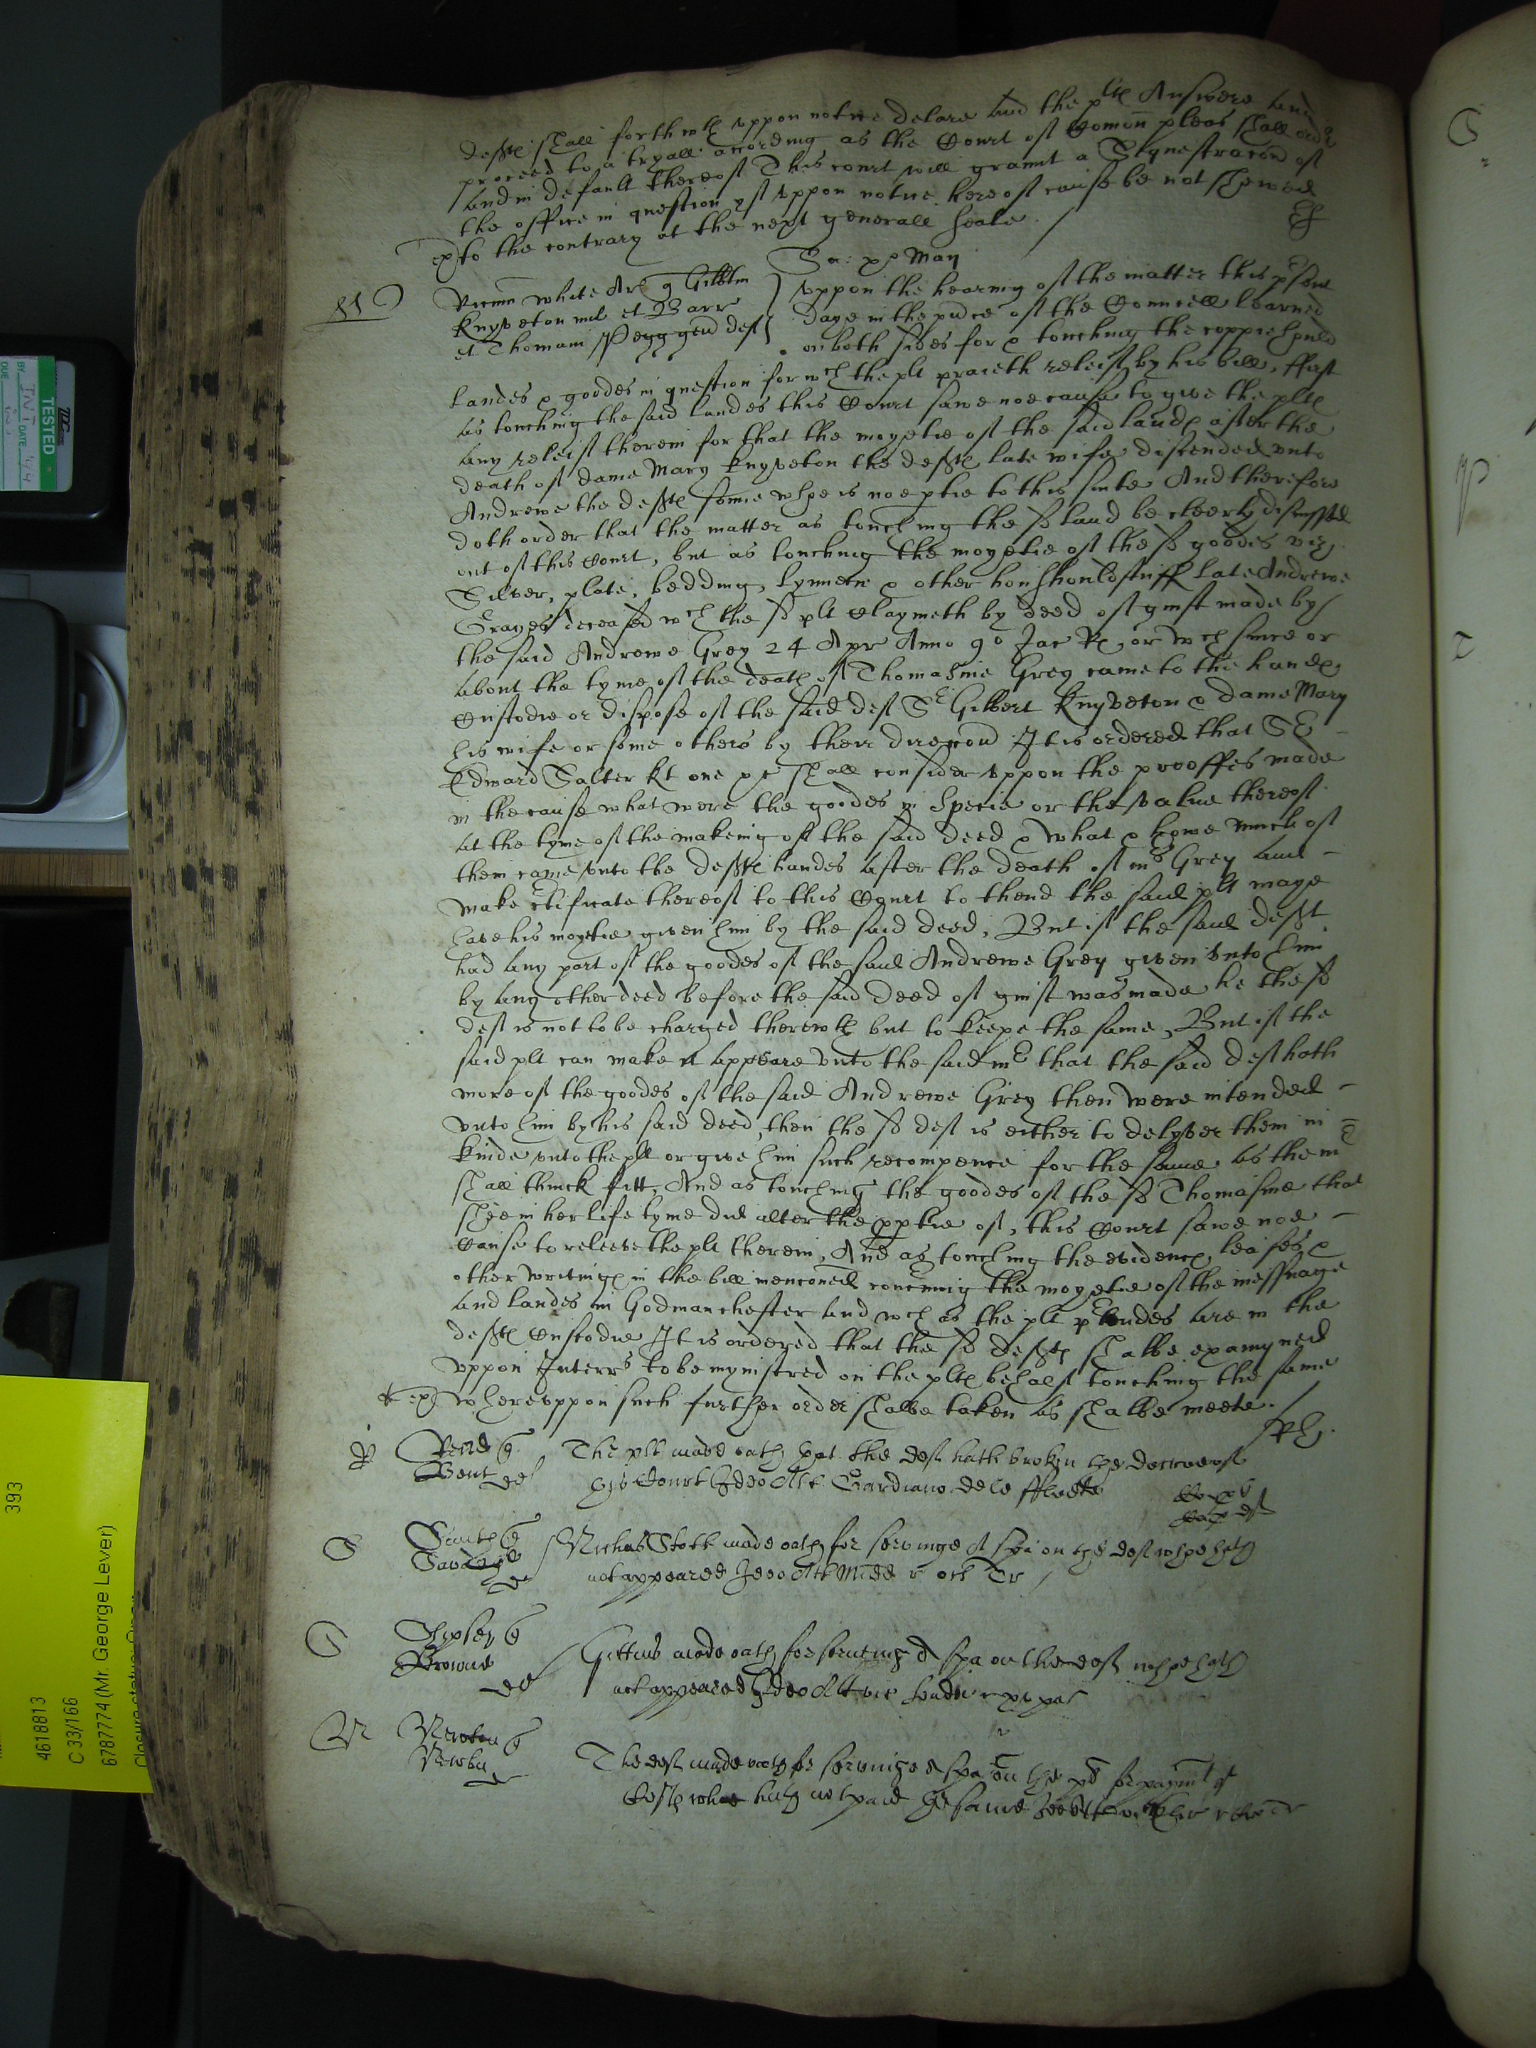 deftes shall forthwth uppon notice declare And the pltes Answere And
proceed to a tryall according as the Court of Comon pleas shall order
And in default thereof This court will graunt a Sequestracon of
the office in question yf uppon notice hereof cause be not shewed
exp to the contrary at the next generall Seale /
Sa: xx May
white Ar q Gilbtm
Knyveton mil et Barr
et Thomam Pegg gen deft
Uppon the hearing of the matter this psent
daye in the pnce of the Councell learned
on both sides for & touching the coppiehould
Landes & goodes in question for wch the plt praieth releif by his bill, ffirst
As touching the said landes this Court sawe noe cause to give the plte
Any releif therein for that the moyetie of the said landes after the
death of dame Mary Knyveton the deftes late wife discended unto
Andrewe the deftes sonne whoe is noe ptie to this suite And therefore
doth order that the matter as touching the sd land be cleerly dismissed
out of this Court, but as touching the moyetie of the sd goodes viz
Silver, plate, bedding, Lynnen & other houshouldstuff Late Andrewe
Grayes deceased wch the sd plt Claymeth by deed of guift made by
the said Andrewe Grey 24 Apr Anno 9o Jac Rs, or wch since or
About the tyme of the death of Thomasine Grey came to the handes
Custodie or dispose of the said deft Sr Gilbert Knyveton & dame Mary
his wife or some others by their direccon It is ordered that Sr
Edmard Salter kt one &c shall consider uppon the prooffes made
in the cause what were the goodes in Specie or the value thereof
At the tyme of the makeing of the said deed & what & howe much of
them came unto the deftes handes After the death of mrs Grey And
make Ctificate thereof to this Court to thend the said plt maye
have his moyetie given him by the said deed, But if the said deft
had Any part of the goodes of the said Andrewe Grey given unto him
by Any other deed before the said deed of guift was made he the sd
deft is not to be charged therewth but to keepe the same, But if the
said plt can make it Appeare unto the said mr that the said deft hath
more of the goodes of the said Andrewe Grey then were intended
unto him by his said deed, then the sd deft is either to delyver them in
kinde unto the plt or give him such recompence for the same As the mr
shall thinck fitt, And as touching the goodes of the sd Thomasine that
shee in her life tyme did alter the pptie of, this Court sawe noe
Cause to releeve the plt therein, And as touching the evidences, leases &
other writinges in the bill menconed concerning the moyetie of the messuage
And landes in Godmanchester And wch as the plt ptendes Are in the
deftes Custodie It is ordered that the sd deftes shalbe examyned
uppon Interrs to be mynistred on the pltes behalf touching the same
exp whereuppon such further order shalbe taken As shalbe meete /
Bent def
The plt made oath that the deft hath broken the decree of
this Court Ideo Att Gardiano de le ffleete
Smith q
Nichas Stock made oath for servinge A spa on the deft whoe hath
not appeared Ideo Att Midd r oct Tr /
q
Browne
def
Gittins made oath for serving A spa on the deft whoe hath
not appeared Ideo Att vic
Newton q
The deft made oath for servinge A spa on the pl for paymt of
Costes whoe hath not paid the same Ideo Att
TESTED
393
4618813
C 33/166
6787774 (Mr. George Lever)